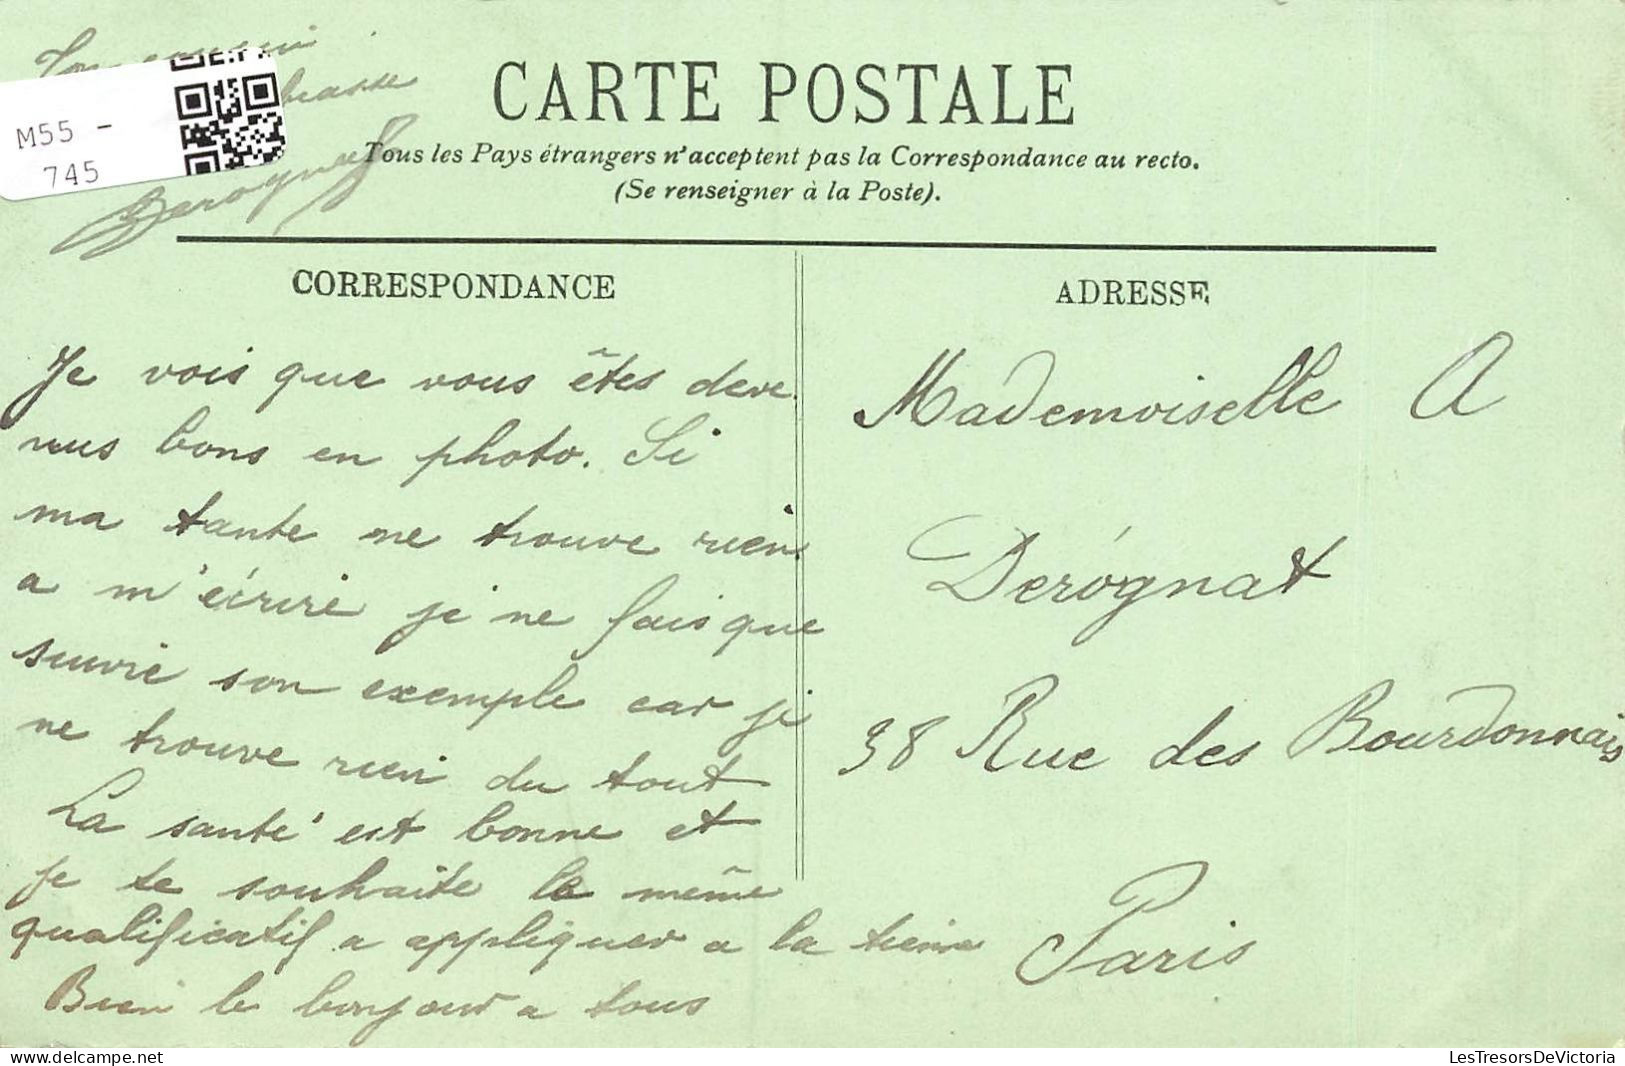 Ton cousin
M55 -
745
CARTE POSTALE
Tous les Pays étrangers n'acceptent pas la Correspondance au recto.
(Se renseigner à la Poste).
CORRESPONDANCE
ADRESSE
Je vois que vous êtes deve
nus bons en photo. Si
ma tante ne trouve rien
a m'écrire je ne fais que
suivre son exemple car je
ne trouve rien du tout
La santé est bonne et
je te souhaite le même
qualificatif a appliquer a la tienne
Bien le bonjour a tous
Mademoiselle A
Derognat
38 Rue des Bourdonnais
Paris
LesTresorsDeVictoria